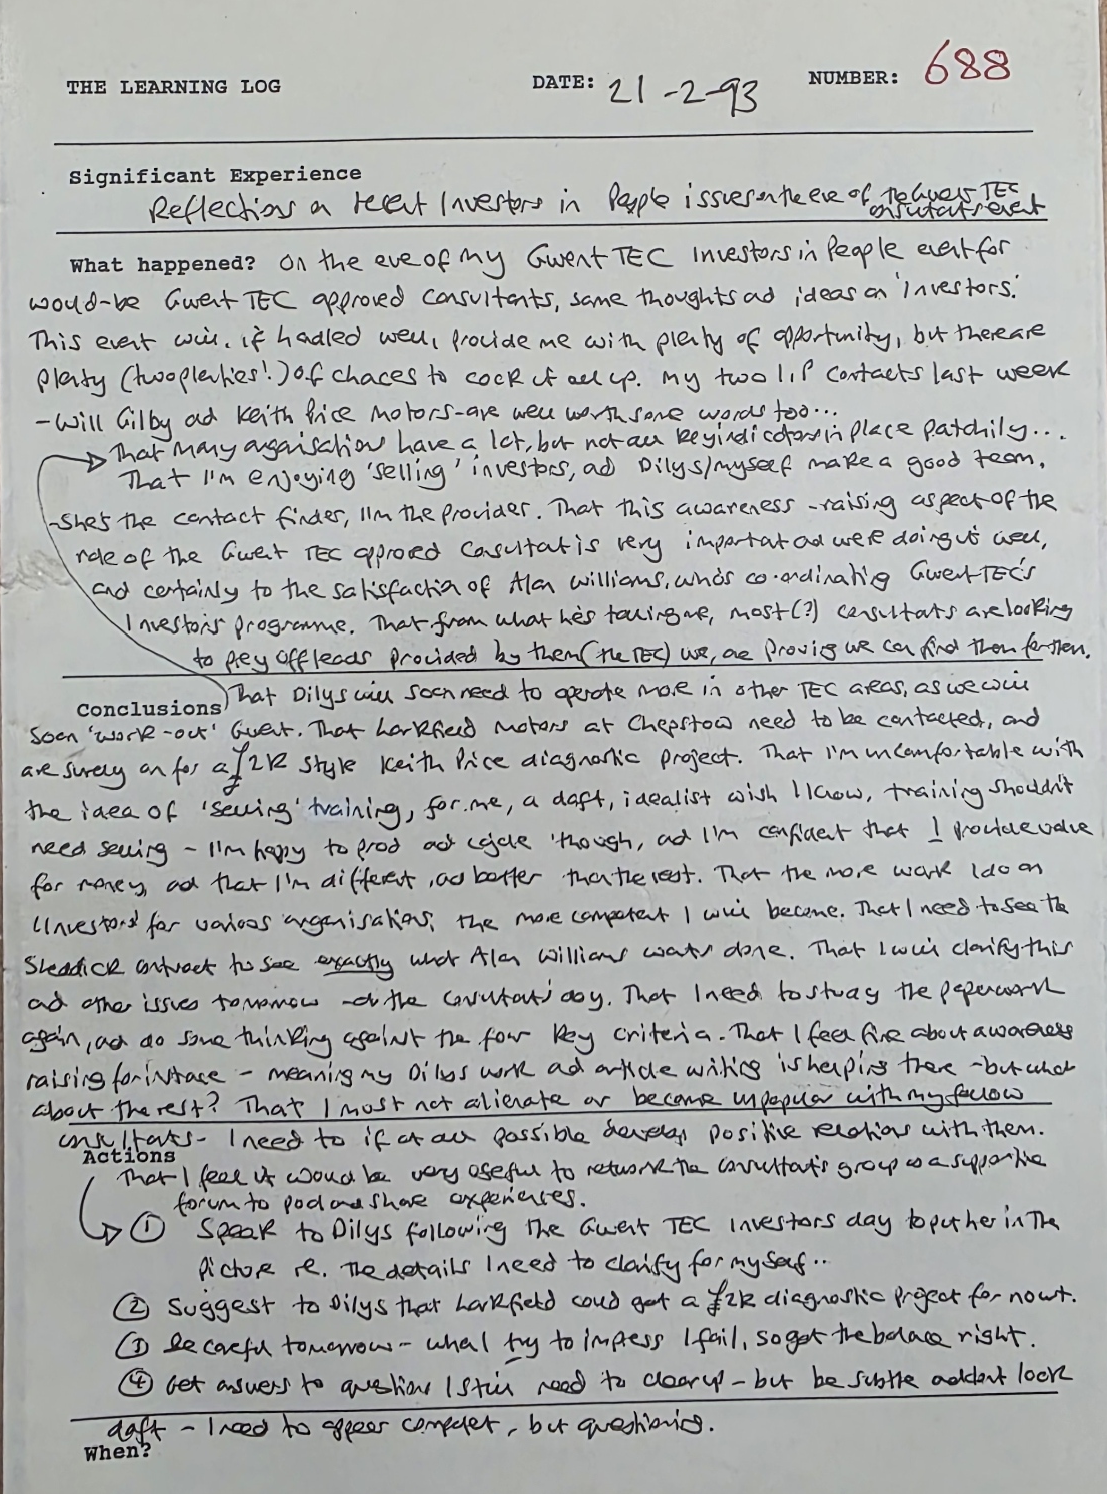 THE LEARNING LOG DATE: 21-2-93 NUMBER: 688
Significant Experience
Reflections on recent Investors in People issues on the eve of the Gwent TEC
consultants event
What happened? On the eve of my Gwent TEC Investors in People event for
would-be Gwent TEC approved consultants, some thoughts and ideas on 'investors'.
This event will, if handled well, provide me with plenty of opportunity, but there are
plenty (two plenties!) of chances to cock it all up. My two IIP contacts last week
- Will Gilby and Keith Price Motors - are well worth some words too...
That many organisations have a lot, but not all key indicators in place patchily...
That I'm enjoying 'selling' investors, and Dilys/myself make a good team.
- She's the contact finder, I'm the provider. That this awareness-raising aspect of the
role of the Gwent TEC approved consultant is very important and we're doing it well,
and certainly to the satisfaction of Alan Williams, who's co-ordinating Gwent TEC's
Investors programme. That from what he's telling me, most (?) consultants are looking
to prey off leads provided by them (the TEC) we, are proving we can find them for them.
Conclusions That Dilys will soon need to operate more in other TEC areas, as we will
soon 'work-out' Gwent. That Larkfield Motors at Chepstow need to be contacted, and
are surely on for a £2K style Keith Price diagnostic project. That I'm uncomfortable with
the idea of 'selling' training, for me, a daft, idealist wish I know, training shouldn't
need selling - I'm happy to prod and cajole 'though, and I'm confident that I provide value
for money, and that I'm different, and better than the rest. That the more work I do on
'Investors' for various organisations, the more competent I will become. That I need to see the
Sheddick contract to see exactly what Alan Williams wants done. That I will clarify this
and other issues tomorrow - at the consultants' day. That I need to study the paperwork
again, and do some thinking against the four key criteria. That I feel fine about awareness
raising for instance - meaning my Dilys work and article writing is helping there - but what
about the rest? That I must not alienate or become unpopular with my fellow
consultants - I need to if at all possible develop positive relations with them.
Actions
That I feel it would be very useful to network the consultants group as a supportive
forum to pool and share experiences.
① Speak to Dilys following the Gwent TEC Investors day to put her in the
picture re. the details I need to clarify for myself..
② Suggest to Dilys that Larkfield could get a £2K diagnostic project for nowt.
③ Be careful tomorrow - when I try to impress I fail, so get the balance right.
④ Get answers to questions I still need to clear up - but be subtle and don't look
daft - I need to appear competent, but questioning.
When?